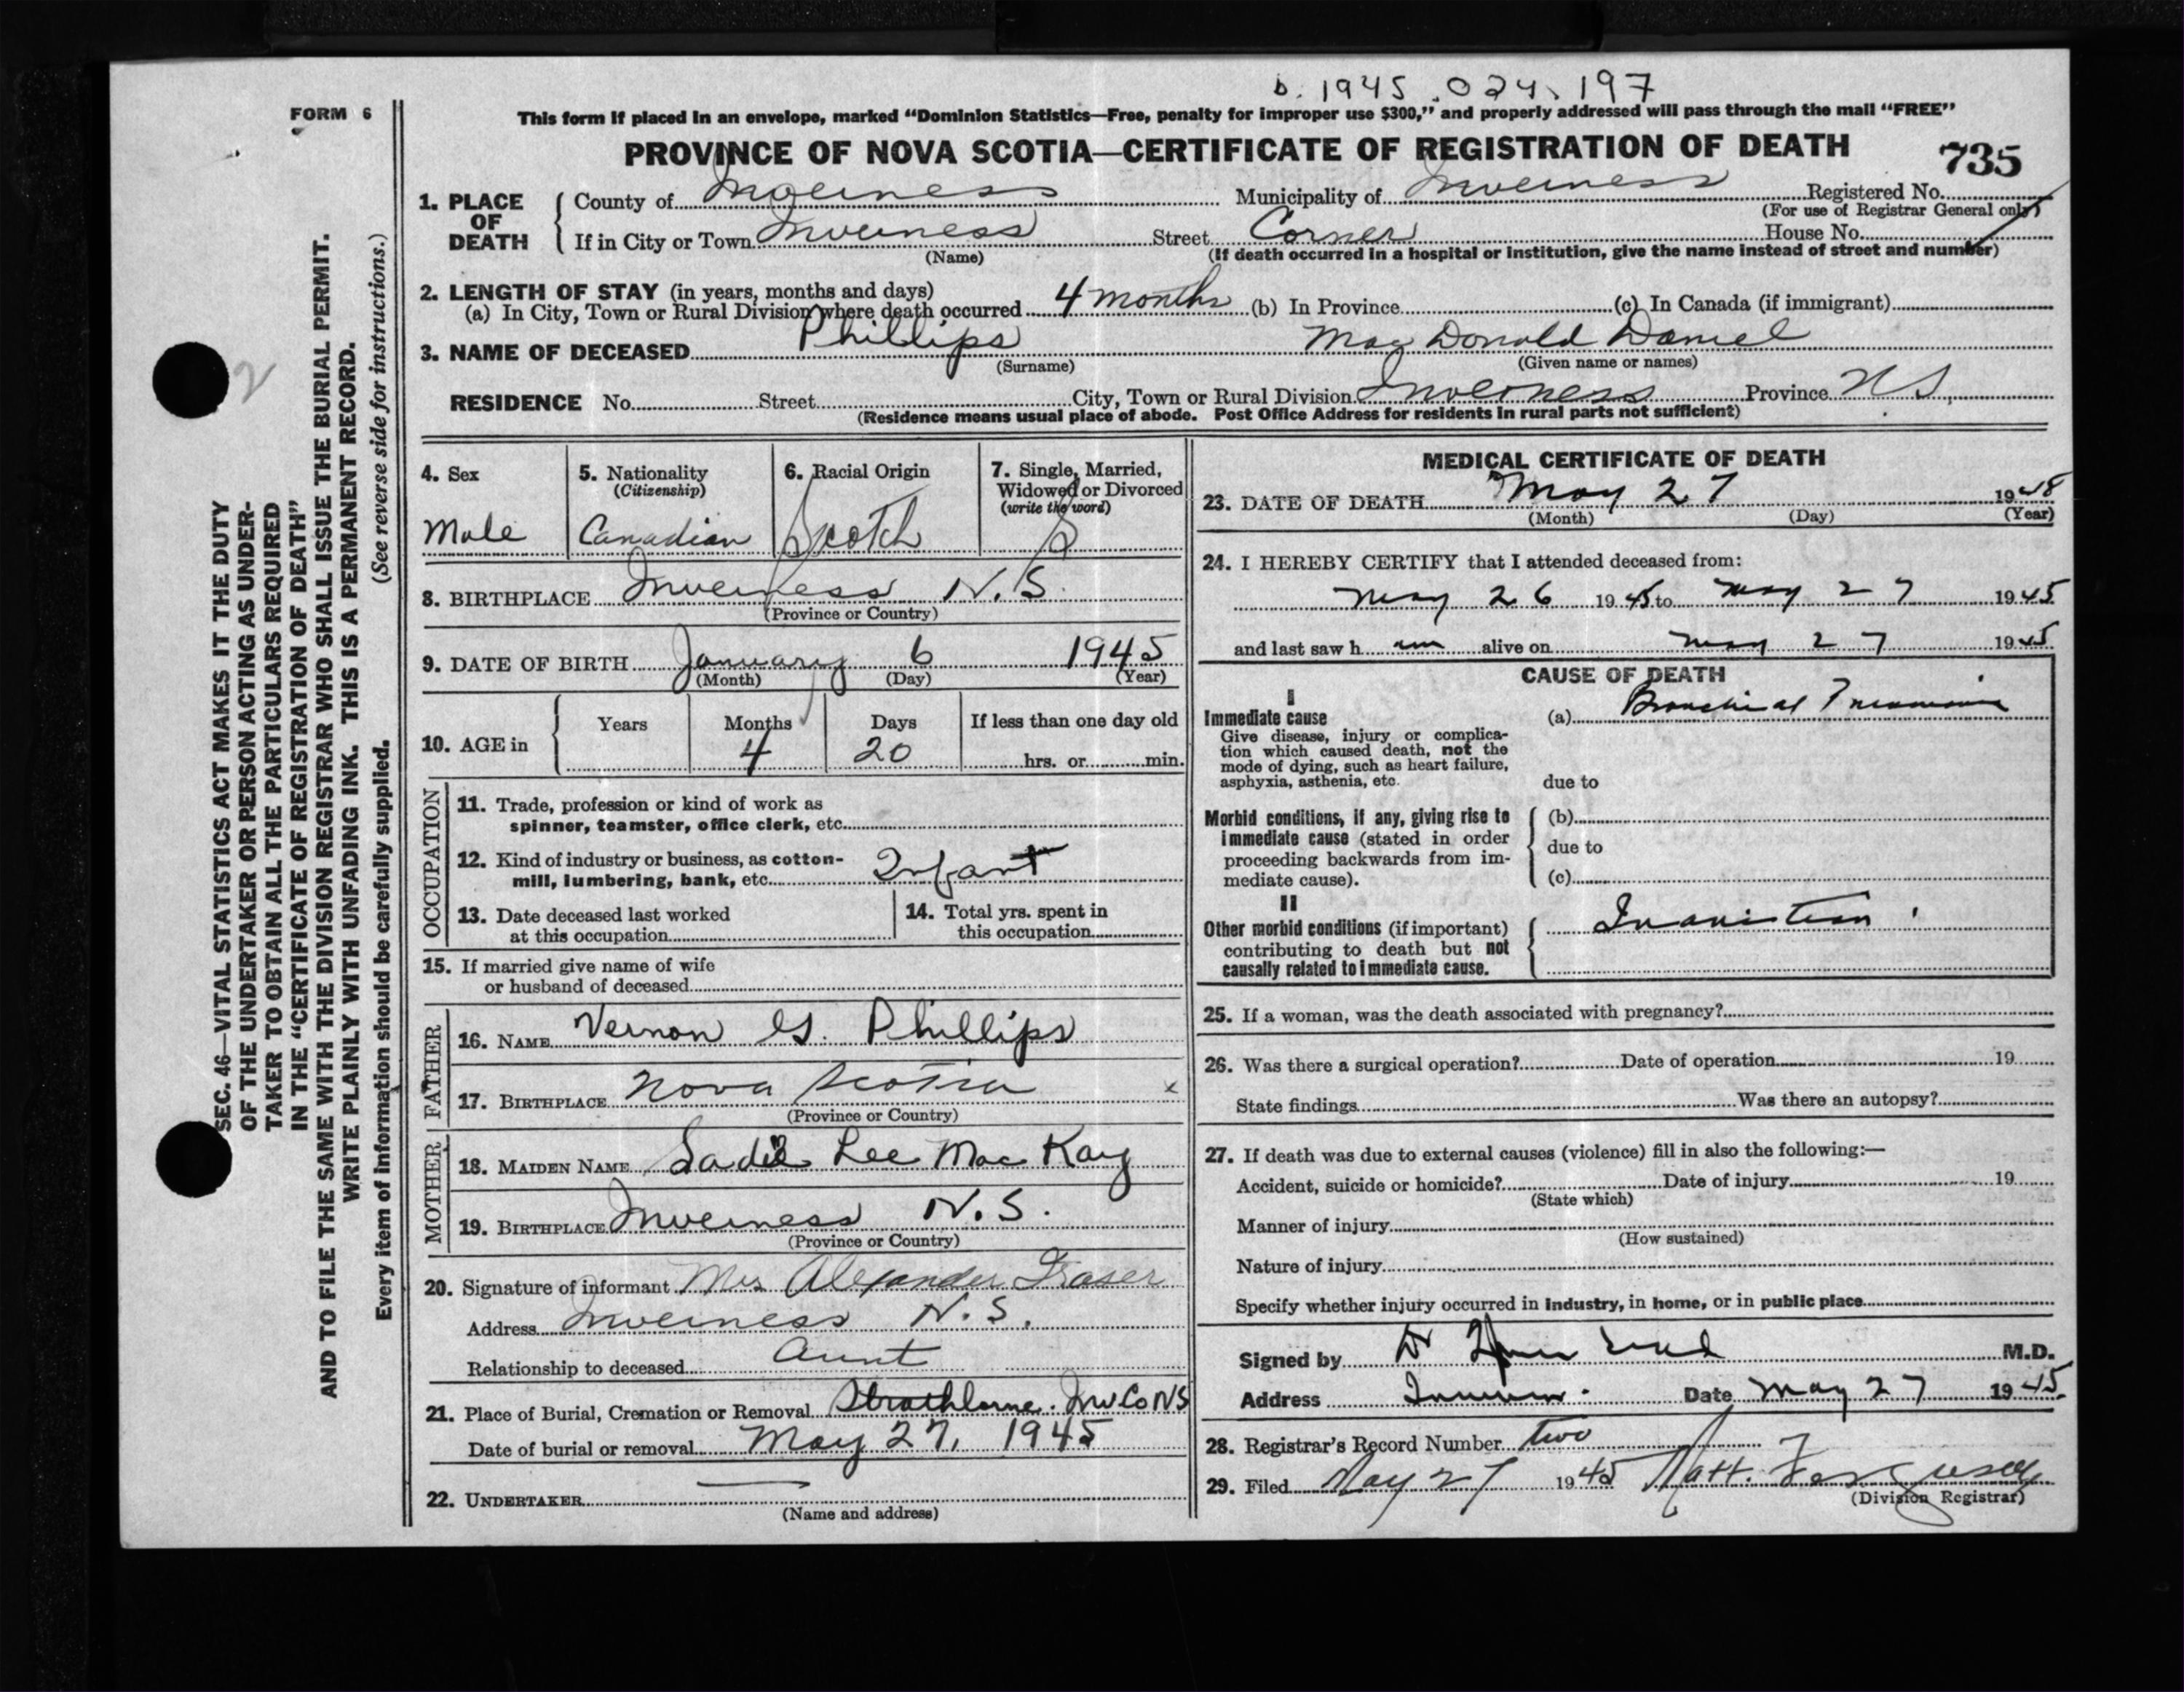 b. 1945.024.197
FORM 6
This form if placed in an envelope, marked "Dominion Statistics—Free, penalty for improper use $300," and properly addressed will pass through the mail "FREE"
PROVINCE OF NOVA SCOTIA—CERTIFICATE OF REGISTRATION OF DEATH
735
1. PLACE OF DEATH
County of Inverness Municipality of Inverness Registered No.
(For use of Registrar General only)
If in City or Town Inverness Street Corner House No.
(Name) (If death occurred in a hospital or institution, give the name instead of street and number)
2. LENGTH OF STAY (in years, months and days)
(a) In City, Town or Rural Division where death occurred 4 months (b) In Province (c) In Canada (if immigrant)
3. NAME OF DECEASED Phillips Mac Donald Daniel
(Surname) (Given name or names)
RESIDENCE No. Street City, Town or Rural Division Inverness Province N S.
(Residence means usual place of abode. Post Office Address for residents in rural parts not sufficient)
SEC. 46—VITAL STATISTICS ACT MAKES IT THE DUTY
OF THE UNDERTAKER OR PERSON ACTING AS UNDER-
TAKER TO OBTAIN ALL THE PARTICULARS REQUIRED
IN THE "CERTIFICATE OF REGISTRATION OF DEATH"
AND TO FILE THE SAME WITH THE DIVISION REGISTRAR WHO SHALL ISSUE THE BURIAL PERMIT.
WRITE PLAINLY WITH UNFADING INK. THIS IS A PERMANENT RECORD.
Every item of information should be carefully supplied. (See reverse side for instructions.)
2
4. Sex
Male
5. Nationality
(Citizenship)
Canadian
6. Racial Origin
Scotch
7. Single, Married,
Widowed or Divorced
(write the word)
S
8. BIRTHPLACE Inverness N.S.
(Province or Country)
9. DATE OF BIRTH January 6 1945
(Month) (Day) (Year)
10. AGE in
Years Months Days If less than one day old
4 20 hrs. or min.
OCCUPATION
11. Trade, profession or kind of work as
spinner, teamster, office clerk, etc.
12. Kind of industry or business, as cotton-
mill, lumbering, bank, etc. Infant
13. Date deceased last worked
at this occupation
14. Total yrs. spent in
this occupation
15. If married give name of wife
or husband of deceased
FATHER
16. NAME Vernon G. Phillips
17. BIRTHPLACE Nova Scotia x
(Province or Country)
MOTHER
18. MAIDEN NAME Sadie Lee Mac Kay
19. BIRTHPLACE Inverness N.S.
(Province or Country)
20. Signature of informant Mrs Alexander Fraser
Address Inverness N.S.
Relationship to deceased Aunt
21. Place of Burial, Cremation or Removal Strathlorne. Inv Co NS
Date of burial or removal May 27, 1945
22. UNDERTAKER —
(Name and address)
MEDICAL CERTIFICATE OF DEATH
23. DATE OF DEATH May 27 1948
(Month) (Day) (Year)
24. I HEREBY CERTIFY that I attended deceased from:
May 26 1945 to May 27 1945
and last saw h im alive on May 27 1945
CAUSE OF DEATH
I
Immediate cause
Give disease, injury or complica-
tion which caused death, not the
mode of dying, such as heart failure,
asphyxia, asthenia, etc.
(a) Bronchial Pneumonia
due to
Morbid conditions, if any, giving rise to
immediate cause (stated in order
proceeding backwards from im-
mediate cause).
(b)
due to
(c)
II
Other morbid conditions (if important)
contributing to death but not
causally related to immediate cause.
Inanition
25. If a woman, was the death associated with pregnancy?
26. Was there a surgical operation? Date of operation 19
State findings Was there an autopsy?
27. If death was due to external causes (violence) fill in also the following:—
Accident, suicide or homicide? Date of injury 19
(State which)
Manner of injury
(How sustained)
Nature of injury
Specify whether injury occurred in industry, in home, or in public place
Signed by Dr M.D.
Address Date May 27 1945
28. Registrar's Record Number two
29. Filed May 27 1945 Matt. Ferguson
(Division Registrar)